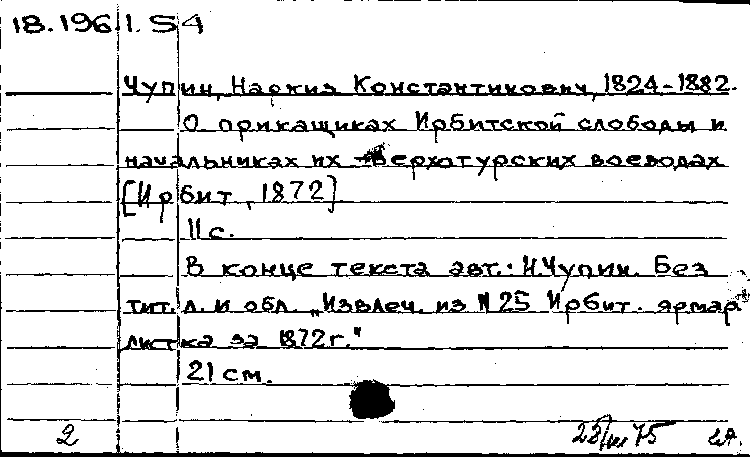 18.196.1.54
Чупин, Наркиз Константинович, 1824-1882.
О прикащиках Ирбитской слободы и
начальниках их - верхотурских воеводах
[Ирбит, 1872]
11 с.
В конце текста авт.: Н.Чупин. Без
тит. л. и обл. „Извлеч. из N 25 Ирбит. ярмар
листка за 1872 г."
21 см.
2 28/III 75